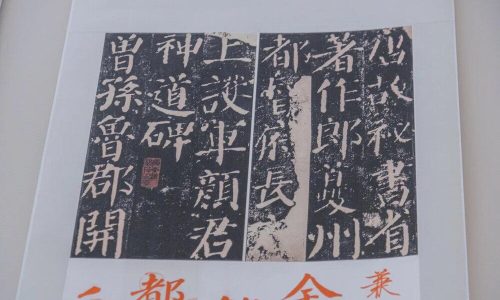 唐故秘書省
著作郎夔州
都督府長
上護軍顏君
神道碑
曾孫魯郡開
兼
金
都